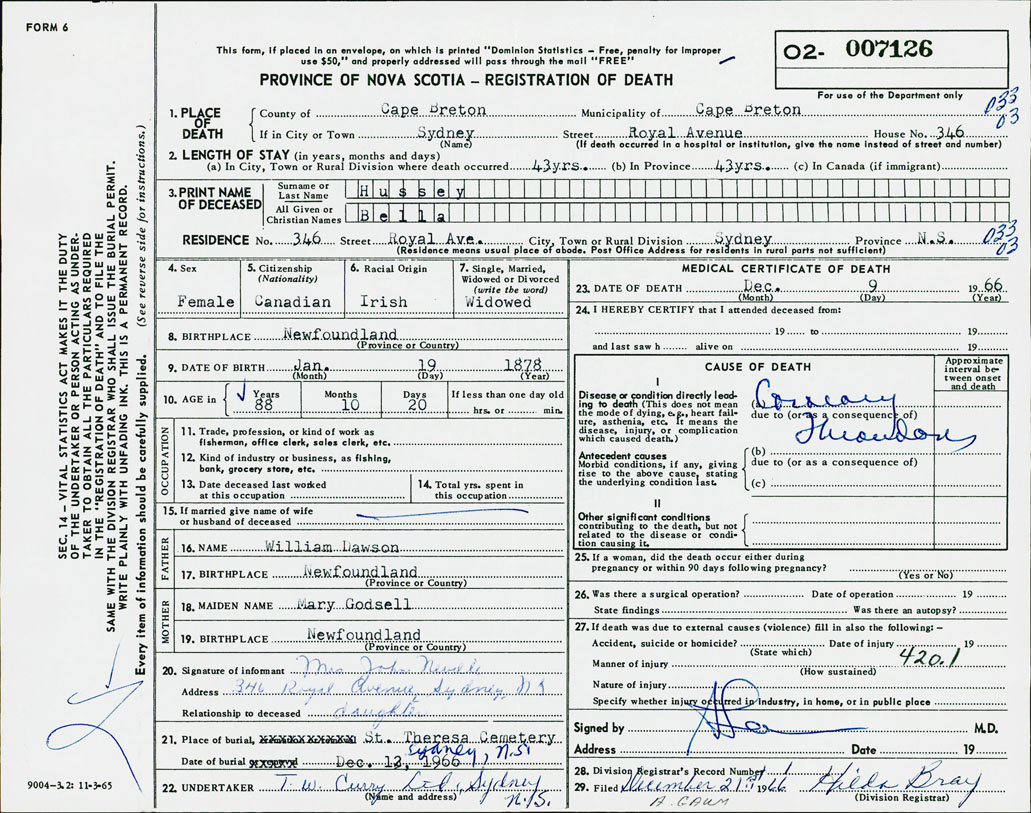 FORM 6
This form, if placed in an envelope, on which is printed "Dominion Statistics – Free, penalty for improper
use $50," and properly addressed will pass through the mail "FREE"
O2- 007126
PROVINCE OF NOVA SCOTIA – REGISTRATION OF DEATH
For use of the Department only
1. PLACE OF DEATH County of Cape Breton Municipality of Cape Breton 033 03
If in City or Town Sydney Street Royal Avenue House No. 346
(Name) (If death occurred in a hospital or institution, give the name instead of street and number)
2. LENGTH OF STAY (in years, months and days)
(a) In City, Town or Rural Division where death occurred 43yrs. (b) In Province 43yrs. (c) In Canada (if immigrant)
3. PRINT NAME OF DECEASED Surname or Last Name Hussey
All Given or Christian Names Bella
RESIDENCE No. 346 Street Royal Ave. City, Town or Rural Division Sydney Province N.S. 033 03
(Residence means usual place of abode. Post Office Address for residents in rural parts not sufficient)
4. Sex
Female
5. Citizenship
(Nationality)
Canadian
6. Racial Origin
Irish
7. Single, Married,
Widowed or Divorced
(write the word)
Widowed
8. BIRTHPLACE Newfoundland
(Province or Country)
9. DATE OF BIRTH Jan. 19 1878
(Month) (Day) (Year)
10. AGE in Years Months Days If less than one day old
88 10 20 hrs. or min.
OCCUPATION
11. Trade, profession, or kind of work as
fisherman, office clerk, sales clerk, etc.
12. Kind of industry or business, as fishing,
bank, grocery store, etc.
13. Date deceased last worked
at this occupation
14. Total yrs. spent in
this occupation
15. If married give name of wife
or husband of deceased
FATHER
16. NAME William Dawson
17. BIRTHPLACE Newfoundland
(Province or Country)
MOTHER
18. MAIDEN NAME Mary Godsell
19. BIRTHPLACE Newfoundland
(Province or Country)
20. Signature of informant Mrs. John
Address 346 Royal Avenue, Sydney, N S
Relationship to deceased daughter
21. Place of burial, St. Theresa Cemetery
Sydney, N.S.
Date of burial Dec. 12, 1966
22. UNDERTAKER T. W. Curry Ltd, Sydney
(Name and address) N.S.
MEDICAL CERTIFICATE OF DEATH
23. DATE OF DEATH Dec. 9 1966
(Month) (Day) (Year)
24. I HEREBY CERTIFY that I attended deceased from:
19 to 19
and last saw h alive on 19
CAUSE OF DEATH
Approximate
interval be-
tween onset
and death
I
Disease or condition directly lead-
ing to death (This does not mean
the mode of dying, e.g., heart fail-
ure, asthenia, etc. It means the
disease, injury, or complication
which caused death.)
(a) Coronary
due to (or as a consequence of)
Thrombosis
Antecedent causes
Morbid conditions, if any, giving
rise to the above cause, stating
the underlying condition last.
(b)
due to (or as a consequence of)
(c)
II
Other significant conditions
contributing to the death, but not
related to the disease or condi-
tion causing it.
25. If a woman, did the death occur either during
pregnancy or within 90 days following pregnancy?
(Yes or No)
26. Was there a surgical operation? Date of operation 19
State findings Was there an autopsy?
27. If death was due to external causes (violence) fill in also the following: –
Accident, suicide or homicide? Date of injury 19
(State which)
Manner of injury 420.1
(How sustained)
Nature of injury
Specify whether injury occurred in industry, in home, or in public place
Signed by M.D.
Address Date 19
28. Division Registrar's Record Number
29. Filed December 21st 1966 Hilda Bray
(Division Registrar)
SEC. 14 – VITAL STATISTICS ACT MAKES IT THE DUTY
OF THE UNDERTAKER OR PERSON ACTING AS UNDER-
TAKER TO OBTAIN ALL THE PARTICULARS REQUIRED
IN THE "REGISTRATION OF DEATH" AND TO FILE THE
SAME WITH THE DIVISION REGISTRAR WHO SHALL ISSUE THE BURIAL PERMIT.
WRITE PLAINLY WITH UNFADING INK. THIS IS A PERMANENT RECORD.
Every item of information should be carefully supplied. (See reverse side for instructions.)
9004-3.2: 11-3-65